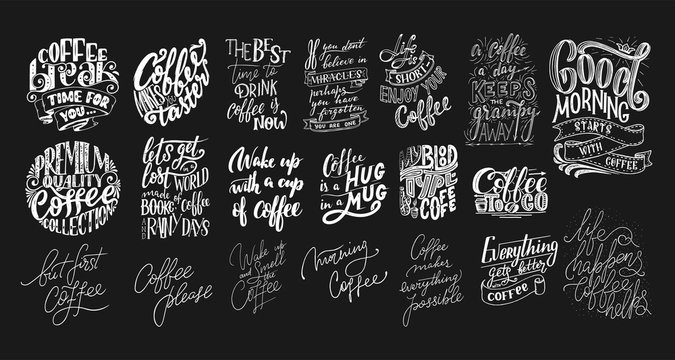 COFFEE
break
TIME FOR
YOU...
Coffee
MAKES
taster
THE BEST
time to
DRINK
coffee is
NOW
If you don't
believe in
MIRACULES
perhaps
you have
forgotten
YOU ARE ONE
Life
IS
SHORT
ENJOY YOUR
Coffee
a coffee
a day
KEEPS
the
grampy
AWAY
Good
MORNING
STARTS
WITH COFFEE
PREMIUM
QUALITY
Coffee
COLLECTION
let's get
lost in WORLD
made of coffee
BOOKS
AND RAINY DAYS
Wake up
with a cup
of coffee
Coffee
is a HUG
in a
MUG
MY BLOD
TYPE IS
COF
FEE
Coffee
TO GO
but first
Coffee
Coffee
please
Wake up
and Smell
the
Coffee
morning
Coffee
Coffee
makes
everything
possible
Everything
gets better
with
COFFEE
life
happens
Coffee
helps